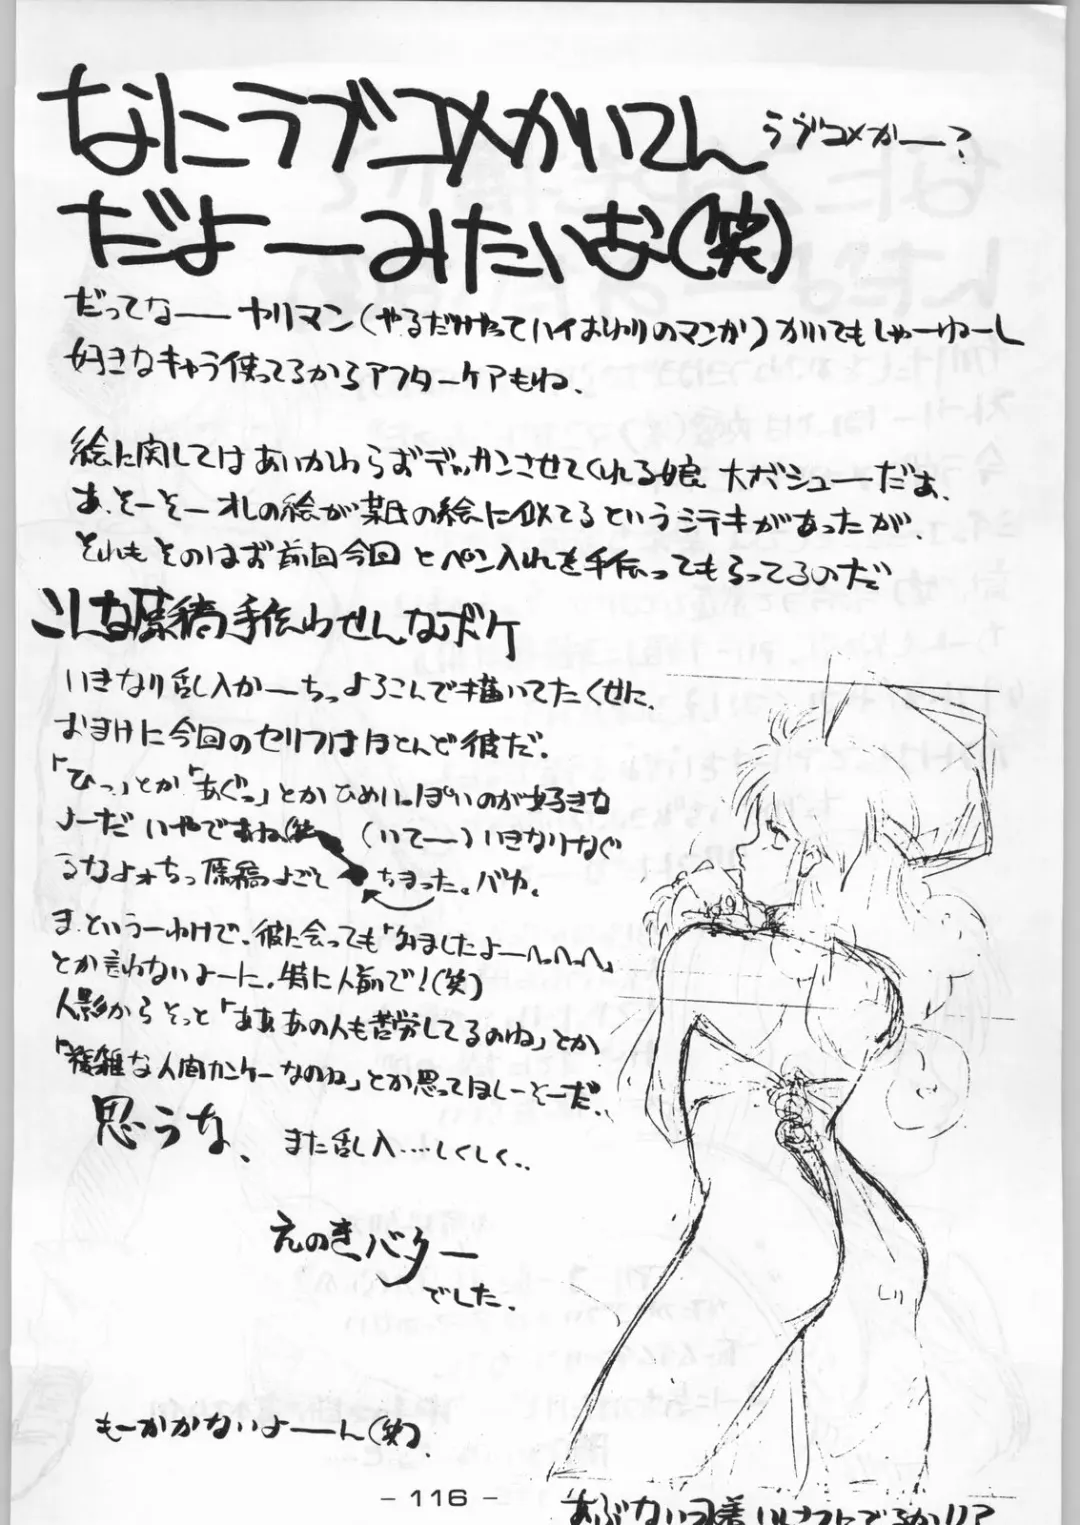 なにラブコメかいてん
ラブコメかー?
だよーみたいな(笑)
だってなーーヤリマン(やるだけやってハイおわりのマンガ)かいてもしゃーねーし
好きなキャラ使ってるからアフターケアもね、
絵に関してはあいかわらずデッサンさせてくれる娘 大ボシューだよ、
あ、そーそーオレの絵が某氏の絵に似てるというシテキがあったが、
それもそのはず前回今回とペン入れを手伝ってもらってるのだ
こんな原稿手伝わせんなボケ
いきなり乱入かーちっよろこんで描いてたくせに、
おまけに今回のセリフはほとんど彼だ。
「ひっ」とか「あぐっ」とかひめいっぽいのが好きな
よーだ いやですね(笑 (いてー)いきなりなぐ
るなよォちっ原稿よごれ ちまった。バカ。
ま、というーわけで、彼に会っても「みましたよーへへへ」
とか言わないよーに、特に人前で!(笑)
人影からそっと「ああ あの人も苦労してるのね」とか
「複雑な人間カンケーなのね」とか思ってほしーそーだ、
思うな、
また乱入…しくしく、、
えのきバター
でした、
もーかかないよーーん(笑)、
- 116 -